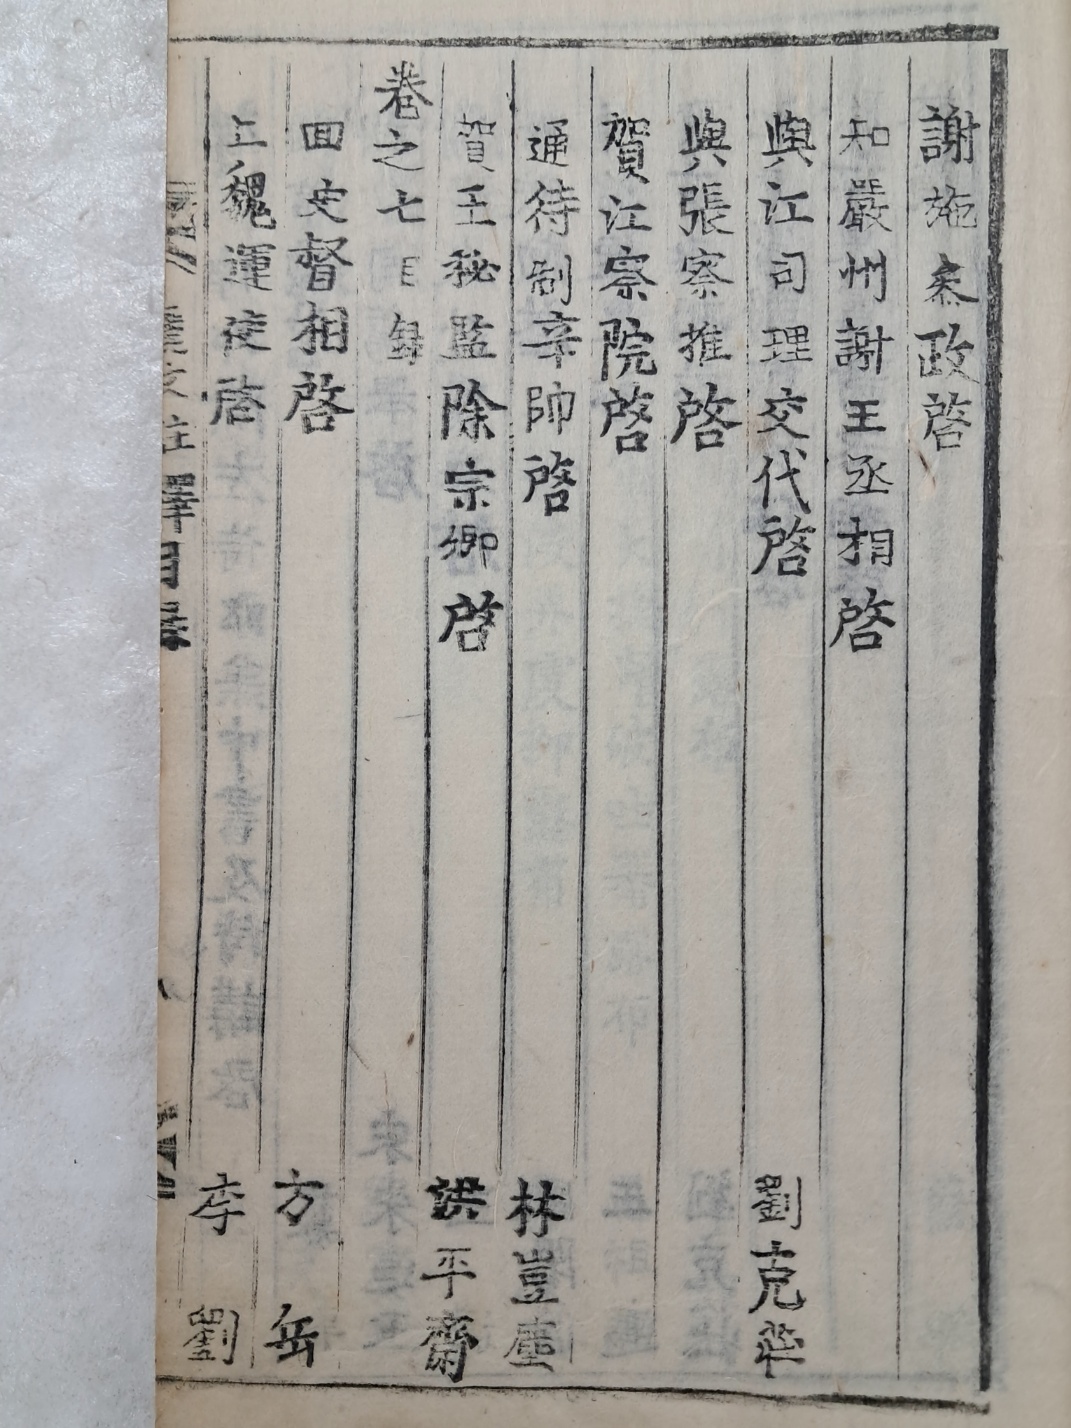 謝施叅政啓
知嚴州謝王丞相啓
與江司理交代啓 劉克莊
與張察推啓
賀江察院啓
通待制辛帥啓 林豈塵
賀王秘監除宗卿啓 洪平齋
卷之七目録
回史督相啓 方岳
上魏運使啓 李劉
文註釋目錄